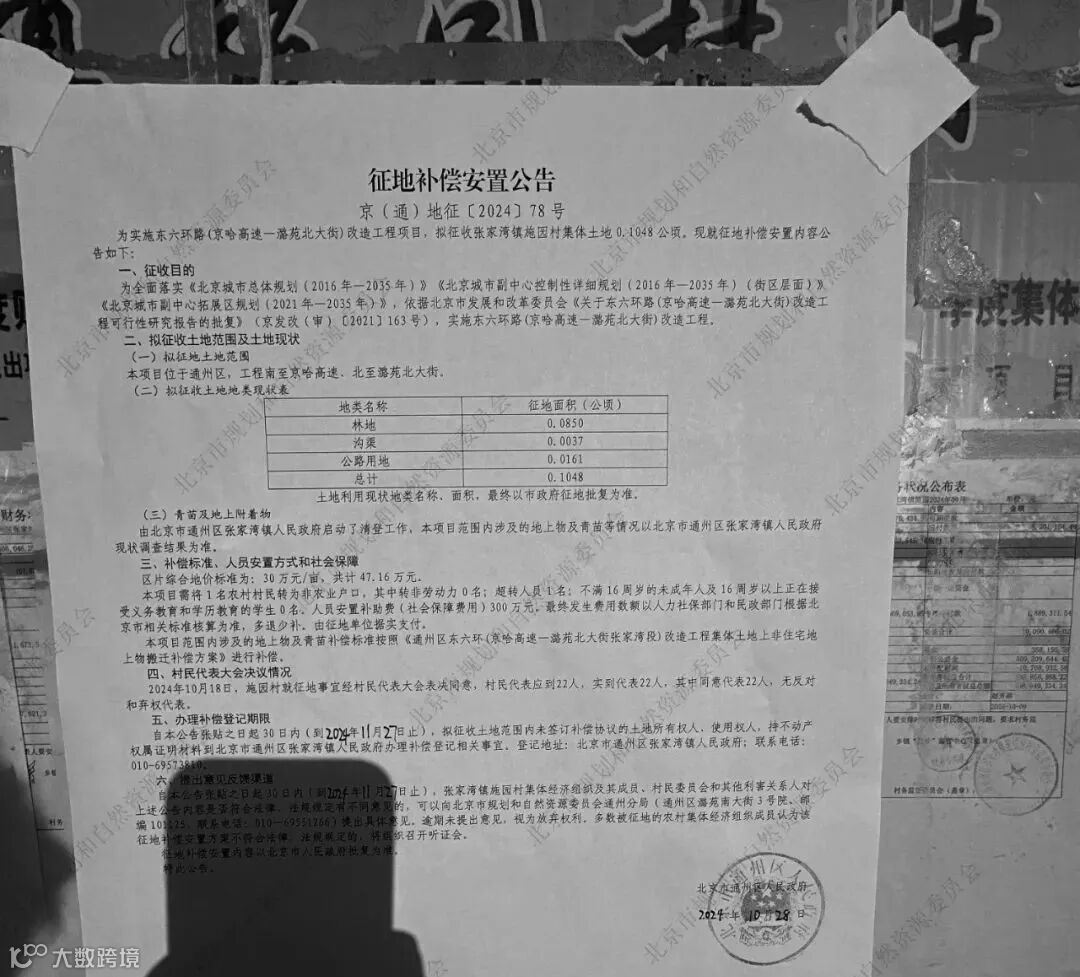 征地补偿安置公告
京（通）地征〔2024〕78号
为实施东六环路(京哈高速—潞苑北大街)改造工程项目，拟征收张家湾镇施园村集体土地0.1048公顷。现就征地补偿安置内容公
告如下：
一、征收目的
为全面落实《北京城市总体规划（2016年—2035年）》《北京城市副中心控制性详细规划（2016年—2035年）（街区层面）》
《北京城市副中心拓展区规划（2021年—2035年）》，依据北京市发展和改革委员会《关于东六环路(京哈高速—潞苑北大街)改造工
程可行性研究报告的批复》（京发改（审）〔2021〕163号），实施东六环路(京哈高速—潞苑北大街)改造工程。
二、拟征收土地范围及土地现状
（一）拟征地土地范围
本项目位于通州区，工程南至京哈高速、北至潞苑北大街。
（二）拟征收土地地类现状表
地类名称 征地面积（公顷）
林地 0.0850
沟渠 0.0037
公路用地 0.0161
总计 0.1048
土地利用现状地类名称、面积，最终以市政府征地批复为准。
（三）青苗及地上附着物
由北京市通州区张家湾镇人民政府启动了清登工作，本项目范围内涉及的地上物及青苗等情况以北京市通州区张家湾镇人民政府
现状调查结果为准。
三、补偿标准、人员安置方式和社会保障
区片综合地价标准为：30万元/亩，共计47.16万元。
本项目需将1名农村村民转为非农业户口，其中转非劳动力0名；超转人员1名；不满16周岁的未成年人及16周岁以上正在接
受义务教育和学历教育的学生0名。人员安置补助费（社会保障费用）300万元。最终发生费用数额以人力社保部门和民政部门根据北
京市相关标准核算为准，多退少补。由征地单位据实支付。
本项目范围内涉及的地上物及青苗补偿标准按照《通州区东六环(京哈高速—潞苑北大街张家湾段)改造工程集体土地上非住宅地
上物搬迁补偿方案》进行补偿。
四、村民代表大会决议情况
2024年10月18日，施园村就征地事宜经村民代表大会表决同意，村民代表应到22人，实到代表22人，其中同意代表22人，无反对
和弃权代表。
五、办理补偿登记期限
自本公告张贴之日起30日内（到2024年11月27日止），拟征收土地范围内未签订补偿协议的土地所有权人、使用权人，持不动产
权属证明材料到北京市通州区张家湾镇人民政府办理补偿登记相关事宜。登记地址：北京市通州区张家湾镇人民政府；联系电话：
010-69573810。
六、提出意见反馈渠道
自本公告张贴之日起30日内（到2024年11月27日止），张家湾镇施园村集体经济组织及其成员、村民委员会和其他利害关系人对
上述公告内容是否符合法律、法规规定有不同意见的，可以向北京市规划和自然资源委员会通州分局（通州区潞苑南大街3号院、邮
编101125、联系电话：010-69551266）提出具体意见。逾期未提出意见，视为放弃权利。多数被征地的农村集体经济组织成员认为该
征地补偿安置方案不符合法律、法规规定的，将组织召开听证会。
征地补偿安置内容以北京市人民政府批复为准。
特此公告。
北京市通州区人民政府
2024年10月28日
北京市规划和自然资源委员会
季度集体
项目
务状况公布表
内容 金额
财务：
大数跨境